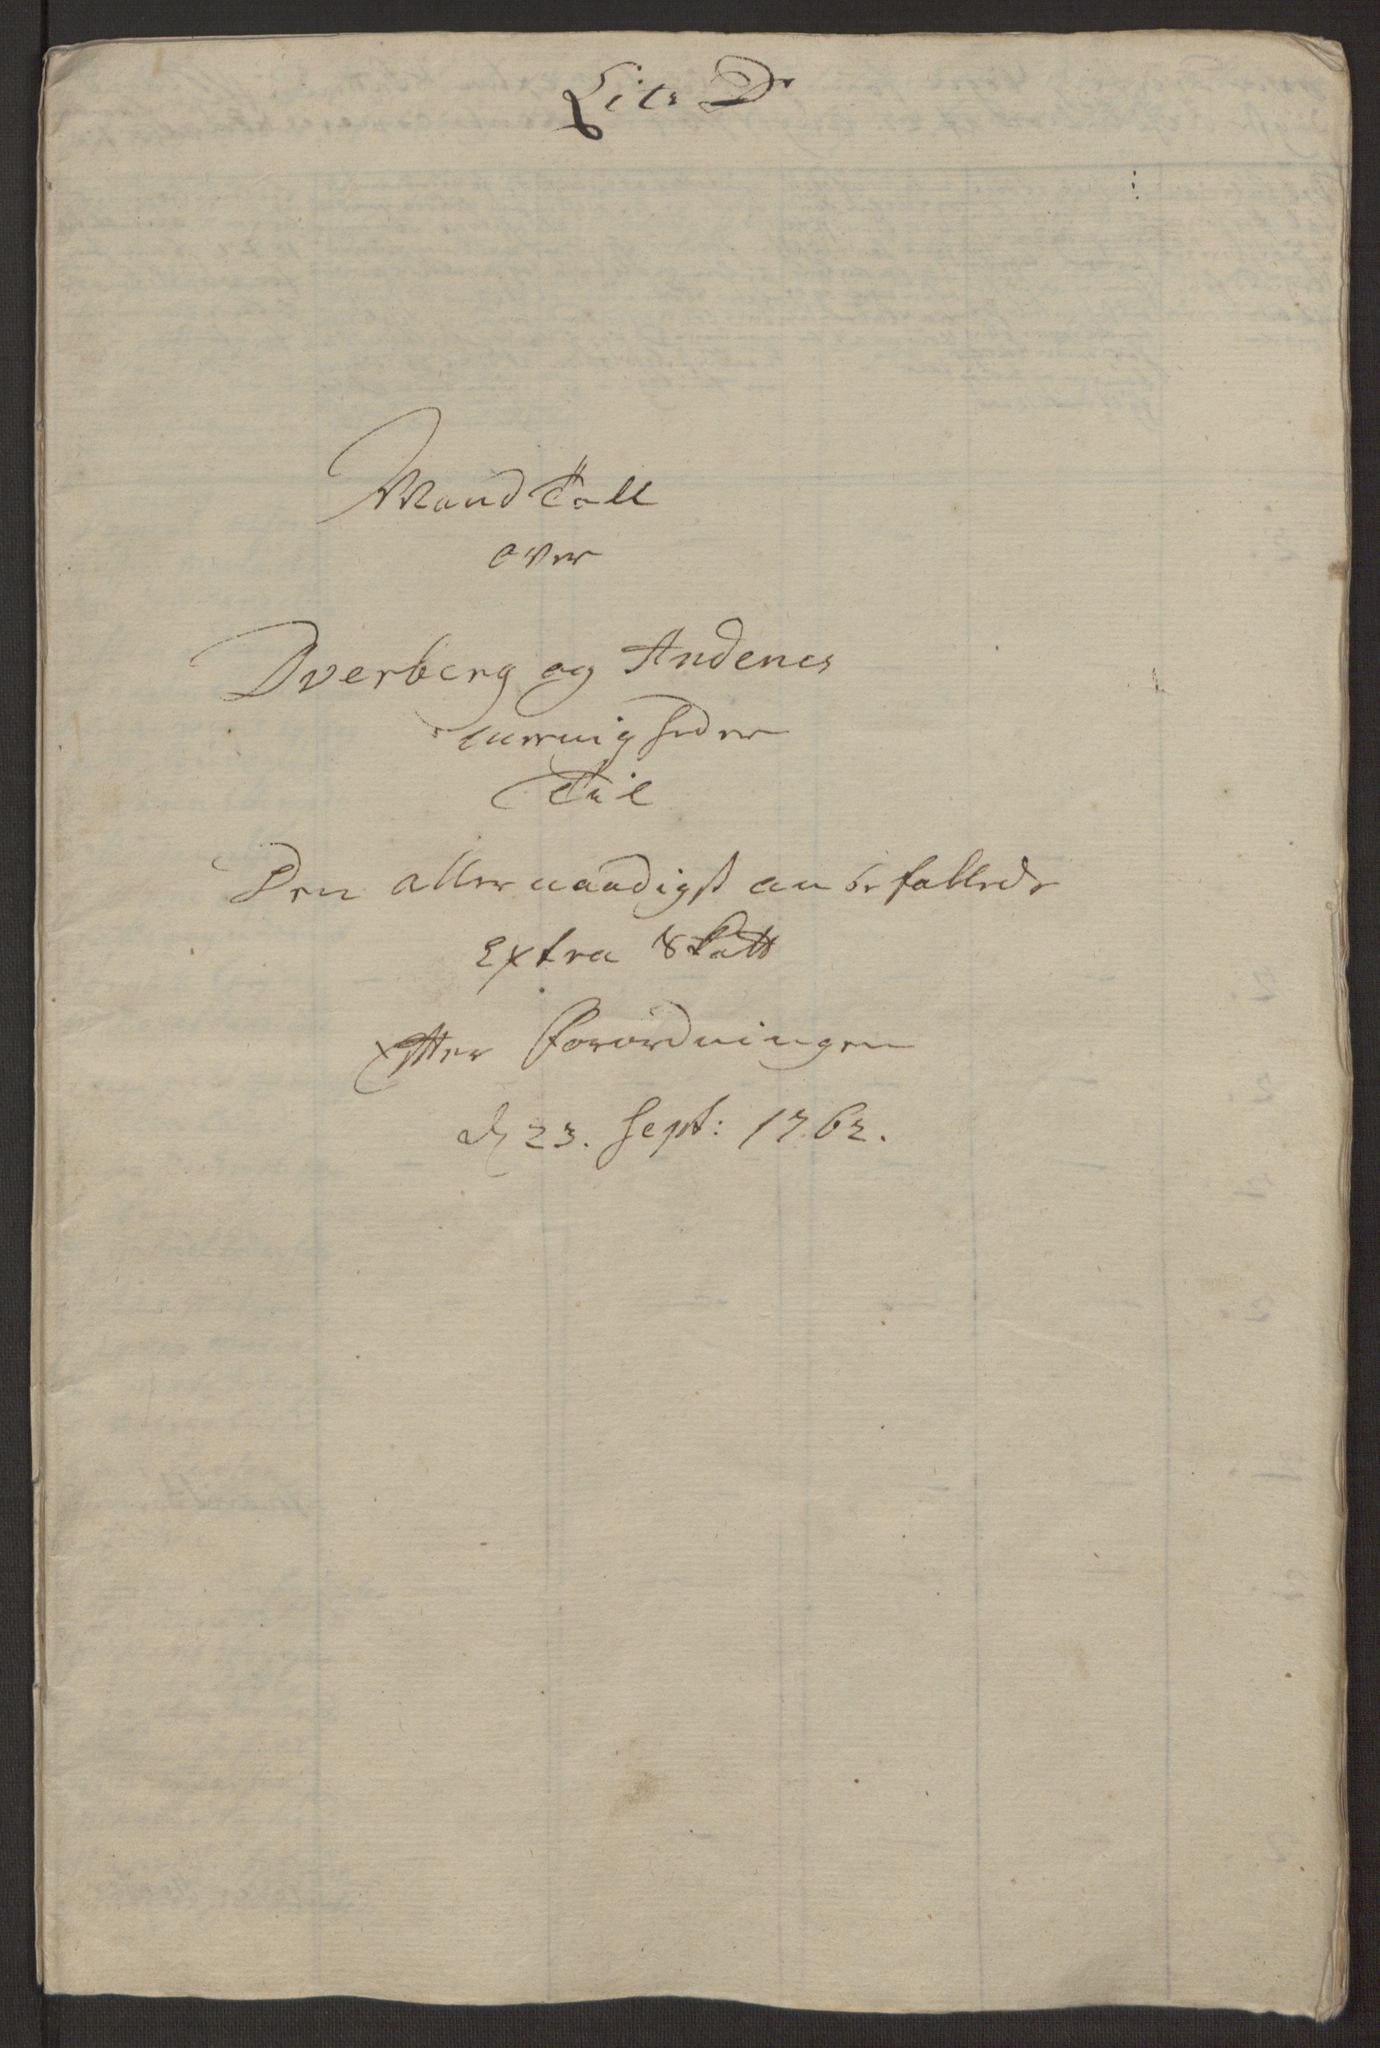 Litr D
Mand Tall
over
Dverberg og Andenes
Menigheder
Til
Den allernaadigst anbefallede
Extra Skatt
Efter Forordningen
d 23. Sept: 1762.